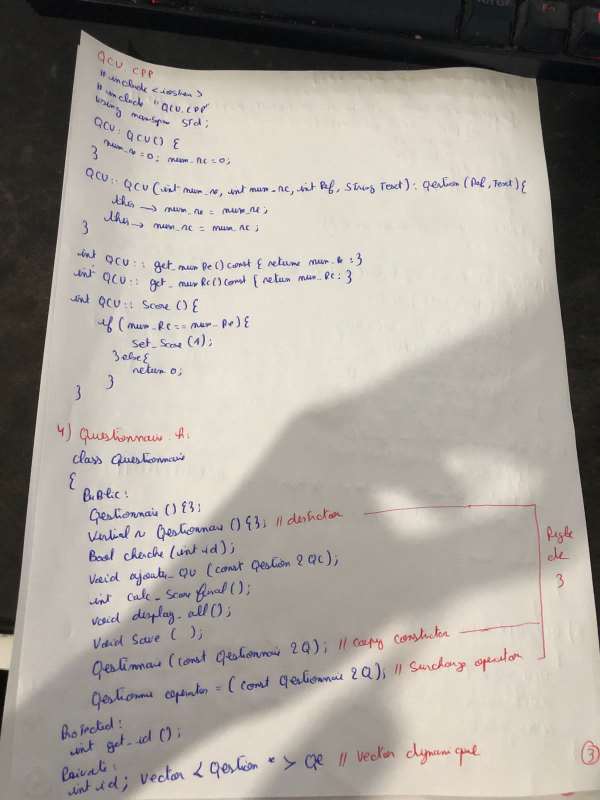 QCU CPP
#include <iostream>
#include "QCU.CPP"
using namespace std;
QCU::QCU() {
num_re=0; num_rc=0;
}
QCU::QCU(int num_re, int num_rc, int Ref, String Text): Qestion(Ref, Text){
this → num_re = num_re;
this → num_rc = num_rc;
}
int QCU:: get_numRe() const { return num_Re; }
int QCU:: get_numRc() const { return num_Rc; }
int QCU:: Score () {
if (num_Rc == num_Re) {
set_Score (1);
} else {
return 0;
}
}
4) Questionnair.h:
class Questionnair
{
Public:
Qestionnair () {};
Virtual ~ Qestionnair () {}; // destructor
Bool cherche (int id);
void ajouter_QU (const Qestion & QC);
int calc_Score final ();
void display_all ();
void Save ( );
Qestionnair (const Qestionnair & Q); // copy constructor
Qestionnair operator = (const Qestionnair & Q); // Surcharge operator
Regle
de
3
Protected:
int get_id ();
Private:
int id; vector < Qestion * > QE // vector dynamique
3